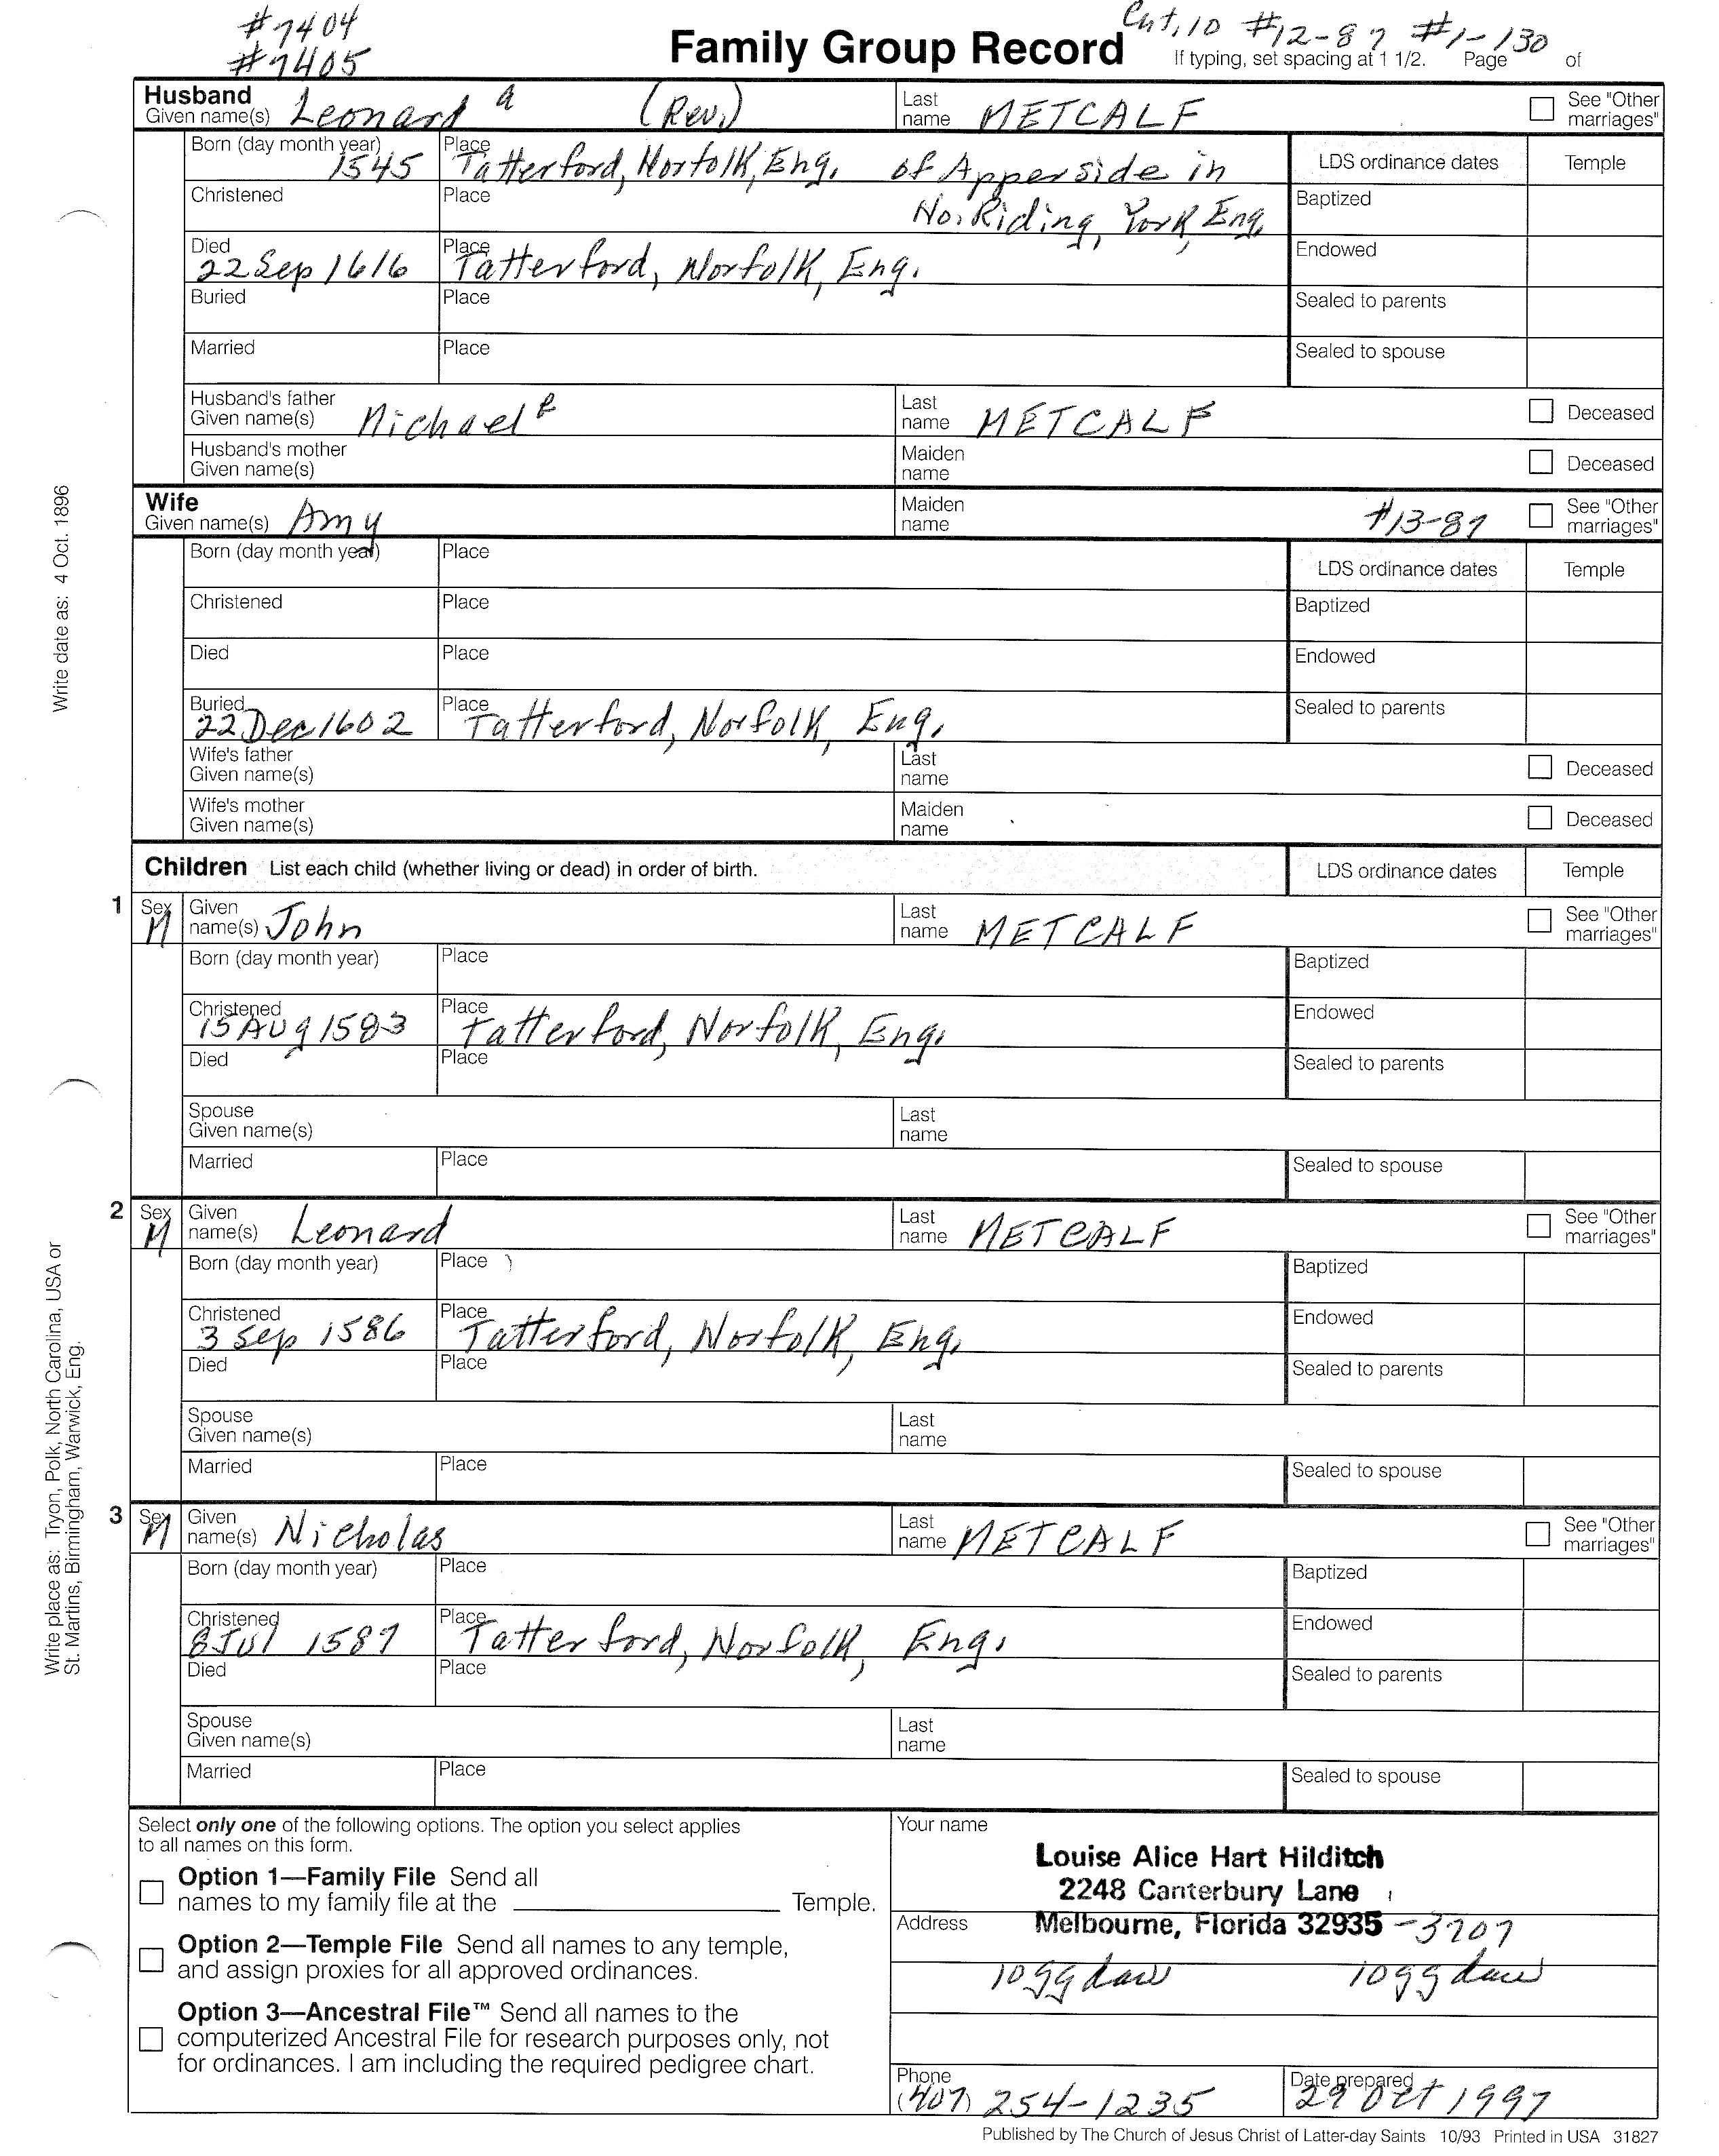 #7404
#7405
Family Group Record
Cht, 10 #12-87 #1-130
If typing, set spacing at 1 1/2. Page of
Husband
Given name(s) Leonard a (Rev.)
Last name METCALF
See "Other marriages"
Born (day month year) 1545
Place Tatterford, Norfolk, Eng. of Apperside in
LDS ordinance dates Temple
Christened
Place No. Riding, York, Eng.
Baptized
Died 22 Sep 1616
Place Tatterford, Norfolk, Eng.
Endowed
Buried
Place
Sealed to parents
Married
Place
Sealed to spouse
Husband's father
Given name(s) Michael
Last name METCALF
Deceased
Husband's mother
Given name(s)
Maiden name
Deceased
Wife
Given name(s) Amy
Maiden name #13-87
See "Other marriages"
Born (day month year)
Place
LDS ordinance dates Temple
Christened
Place
Baptized
Died
Place
Endowed
Buried 22 Dec 1602
Place Tatterford, Norfolk, Eng.
Sealed to parents
Wife's father
Given name(s)
Last name
Deceased
Wife's mother
Given name(s)
Maiden name
Deceased
Children List each child (whether living or dead) in order of birth.
LDS ordinance dates Temple
1 Sex M
Given name(s) John
Last name METCALF
See "Other marriages"
Born (day month year)
Place
Baptized
Christened 15 Aug 1583
Place Tatterford, Norfolk, Eng.
Endowed
Died
Place
Sealed to parents
Spouse
Given name(s)
Last name
Married
Place
Sealed to spouse
2 Sex M
Given name(s) Leonard
Last name METCALF
See "Other marriages"
Born (day month year)
Place
Baptized
Christened 3 Sep 1586
Place Tatterford, Norfolk, Eng.
Endowed
Died
Place
Sealed to parents
Spouse
Given name(s)
Last name
Married
Place
Sealed to spouse
3 Sex M
Given name(s) Nicholas
Last name METCALF
See "Other marriages"
Born (day month year)
Place
Baptized
Christened 8 Jul 1587
Place Tatterford, Norfolk, Eng.
Endowed
Died
Place
Sealed to parents
Spouse
Given name(s)
Last name
Married
Place
Sealed to spouse
Select only one of the following options. The option you select applies
to all names on this form.
Option 1—Family File Send all
names to my family file at the Temple.
Option 2—Temple File Send all names to any temple,
and assign proxies for all approved ordinances.
Option 3—Ancestral File™ Send all names to the
computerized Ancestral File for research purposes only, not
for ordinances. I am including the required pedigree chart.
Your name
Louise Alice Hart Hilditch
2248 Canterbury Lane
Address Melbourne, Florida 32935 -3707
Phone (407) 254-1235
Date prepared 29 Oct 1997
Published by The Church of Jesus Christ of Latter-day Saints 10/93 Printed in USA 31827
Write date as: 4 Oct. 1896
Write place as: Tryon, Polk, North Carolina, USA or
St. Martins, Birmingham, Warwick, Eng.